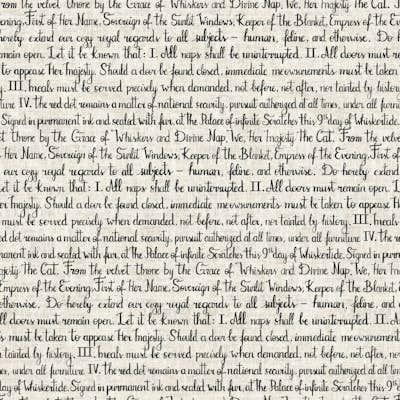 From the velvet throne by the Grace of Whiskers and Divine Nap, We, Her Majesty The Cat,
First of Her Name, Sovereign of the Sunlit Windows, Keeper of the Blanket, Empress of the Ev
hereby extend our cozy royal regards to all subjects – human, feline, and otherwise. Do h
emain open. Let it be known that: I. All naps shall be uninterrupted. II. All doors must re
to appease Her Majesty. Should a door be found closed, immediate meowsurements must be taken
y. III. meals must be served precisely when demanded, not before, not after, nor tainted by history
ture IV. the red dot remains a matter of national security, pursuit authorized at all times, under all furni
Signed in purrmanent ink and sealed with fur, at The Palace of infinite Scratches this 9th day of Whiskertide.
t throne by the Grace of Whiskers and Divine Nap, We, Her Majesty The Cat. From the velve
Her Name, Sovereign of the Sunlit Windows, Keeper of the Blanket, Empress of the Evening, First of
our cozy royal regards to all subjects – human, feline, and otherwise. Do hereby extend
Let it be known that: I. All naps shall be uninterrupted. II. All doors must remain open. L
jesty. Should a door be found closed, immediate meowsurements must be taken to appease Her Ma
must be served precisely when demanded, not before, not after, nor tainted by history. III. meals
ed dot remains a matter of national security, pursuit authorized at all times, under all furniture IV. the r
anent ink and sealed with fur, at The Palace of infinite Scratches this 9th day of Whiskertide. Signed in purrm
jesty The Cat. From the velvet throne by the Grace of Whiskers and Divine Nap, We, Her Ma
Empress of the Evening, First of Her Name, Sovereign of the Sunlit Windows, Keeper of the Blanket,
otherwise. Do hereby extend our cozy royal regards to all subjects – human, feline, and
ll doors must remain open. Let it be known that: I. All naps shall be uninterrupted. II. A
s must be taken to appease Her Majesty. Should a door be found closed, immediate meowsurement
tainted by history. III. meals must be served precisely when demanded, not before, not after, nor
es, under all furniture IV. the red dot remains a matter of national security, pursuit authorized at all tim
day of Whiskertide. Signed in purrmanent ink and sealed with fur, at The Palace of infinite Scratches this 9th